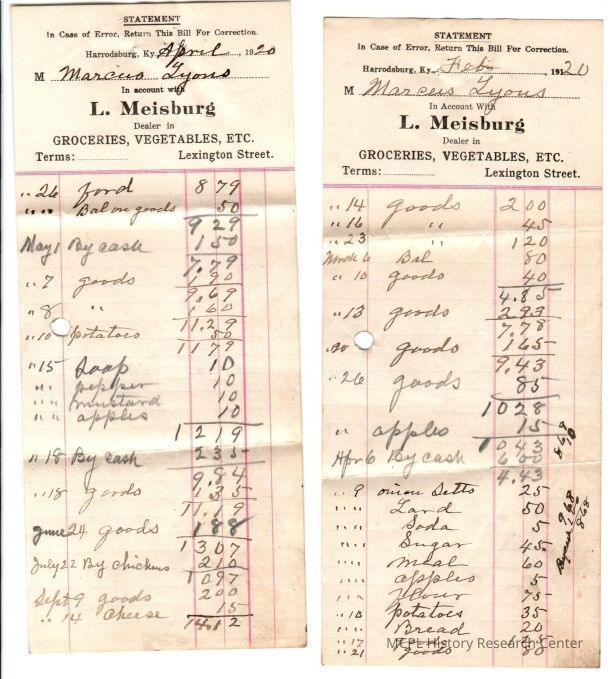 STATEMENT
In Case of Error, Return This Bill For Correction.
Harrodsburg, Ky., April, 1920
M Marcus Lyons
In account with
L. Meisburg
Dealer in
GROCERIES, VEGETABLES, ETC.
Terms: Lexington Street.
" 26 ford 8 79
" " Bal on goods 50
9 29
May 1 By cash 1 50
7.79
" 7 goods 1 90
9.69
" 8 " 1 60
11.29
" 10 potatoes 50
11 79
" 15 Soap 10
" " pepper 10
" " mustard 10
" " apples 10
12 19
" 18 By cash 2 35
9.84
" 18 goods 1 35
11.19
June 24 goods 1 88
13 07
July 22 By chickens 2 10
10 97
Sept 9 goods 2 00
" 14 Cheese 15
14.12
STATEMENT
In Case of Error, Return This Bill For Correction.
Harrodsburg, Ky., Feb, 191 20
M Marcus Lyons
In Account With
L. Meisburg
Dealer in
GROCERIES, VEGETABLES, ETC.
Terms: Lexington Street.
" 14 goods 2 00
" 16 " 45
" 23 " 1 20
March 6 Bal 80
" 10 goods 40
4.85
" 13 goods 2.93
7.78
20 goods 1 65
9.43
" 26 goods 85
10 28
" apples 15
10 43
Apr 6 By cash 6 00
4.43
" 9 onion Setts 25
" " Lard 50
" " Soda 5
" " Sugar 45
" " meal 60
" " apples 5
" " Flour 75
" 10 potatoes 35
" " Bread 20
" 17
" 21 goods 80
8 68
MCPL History Research Center